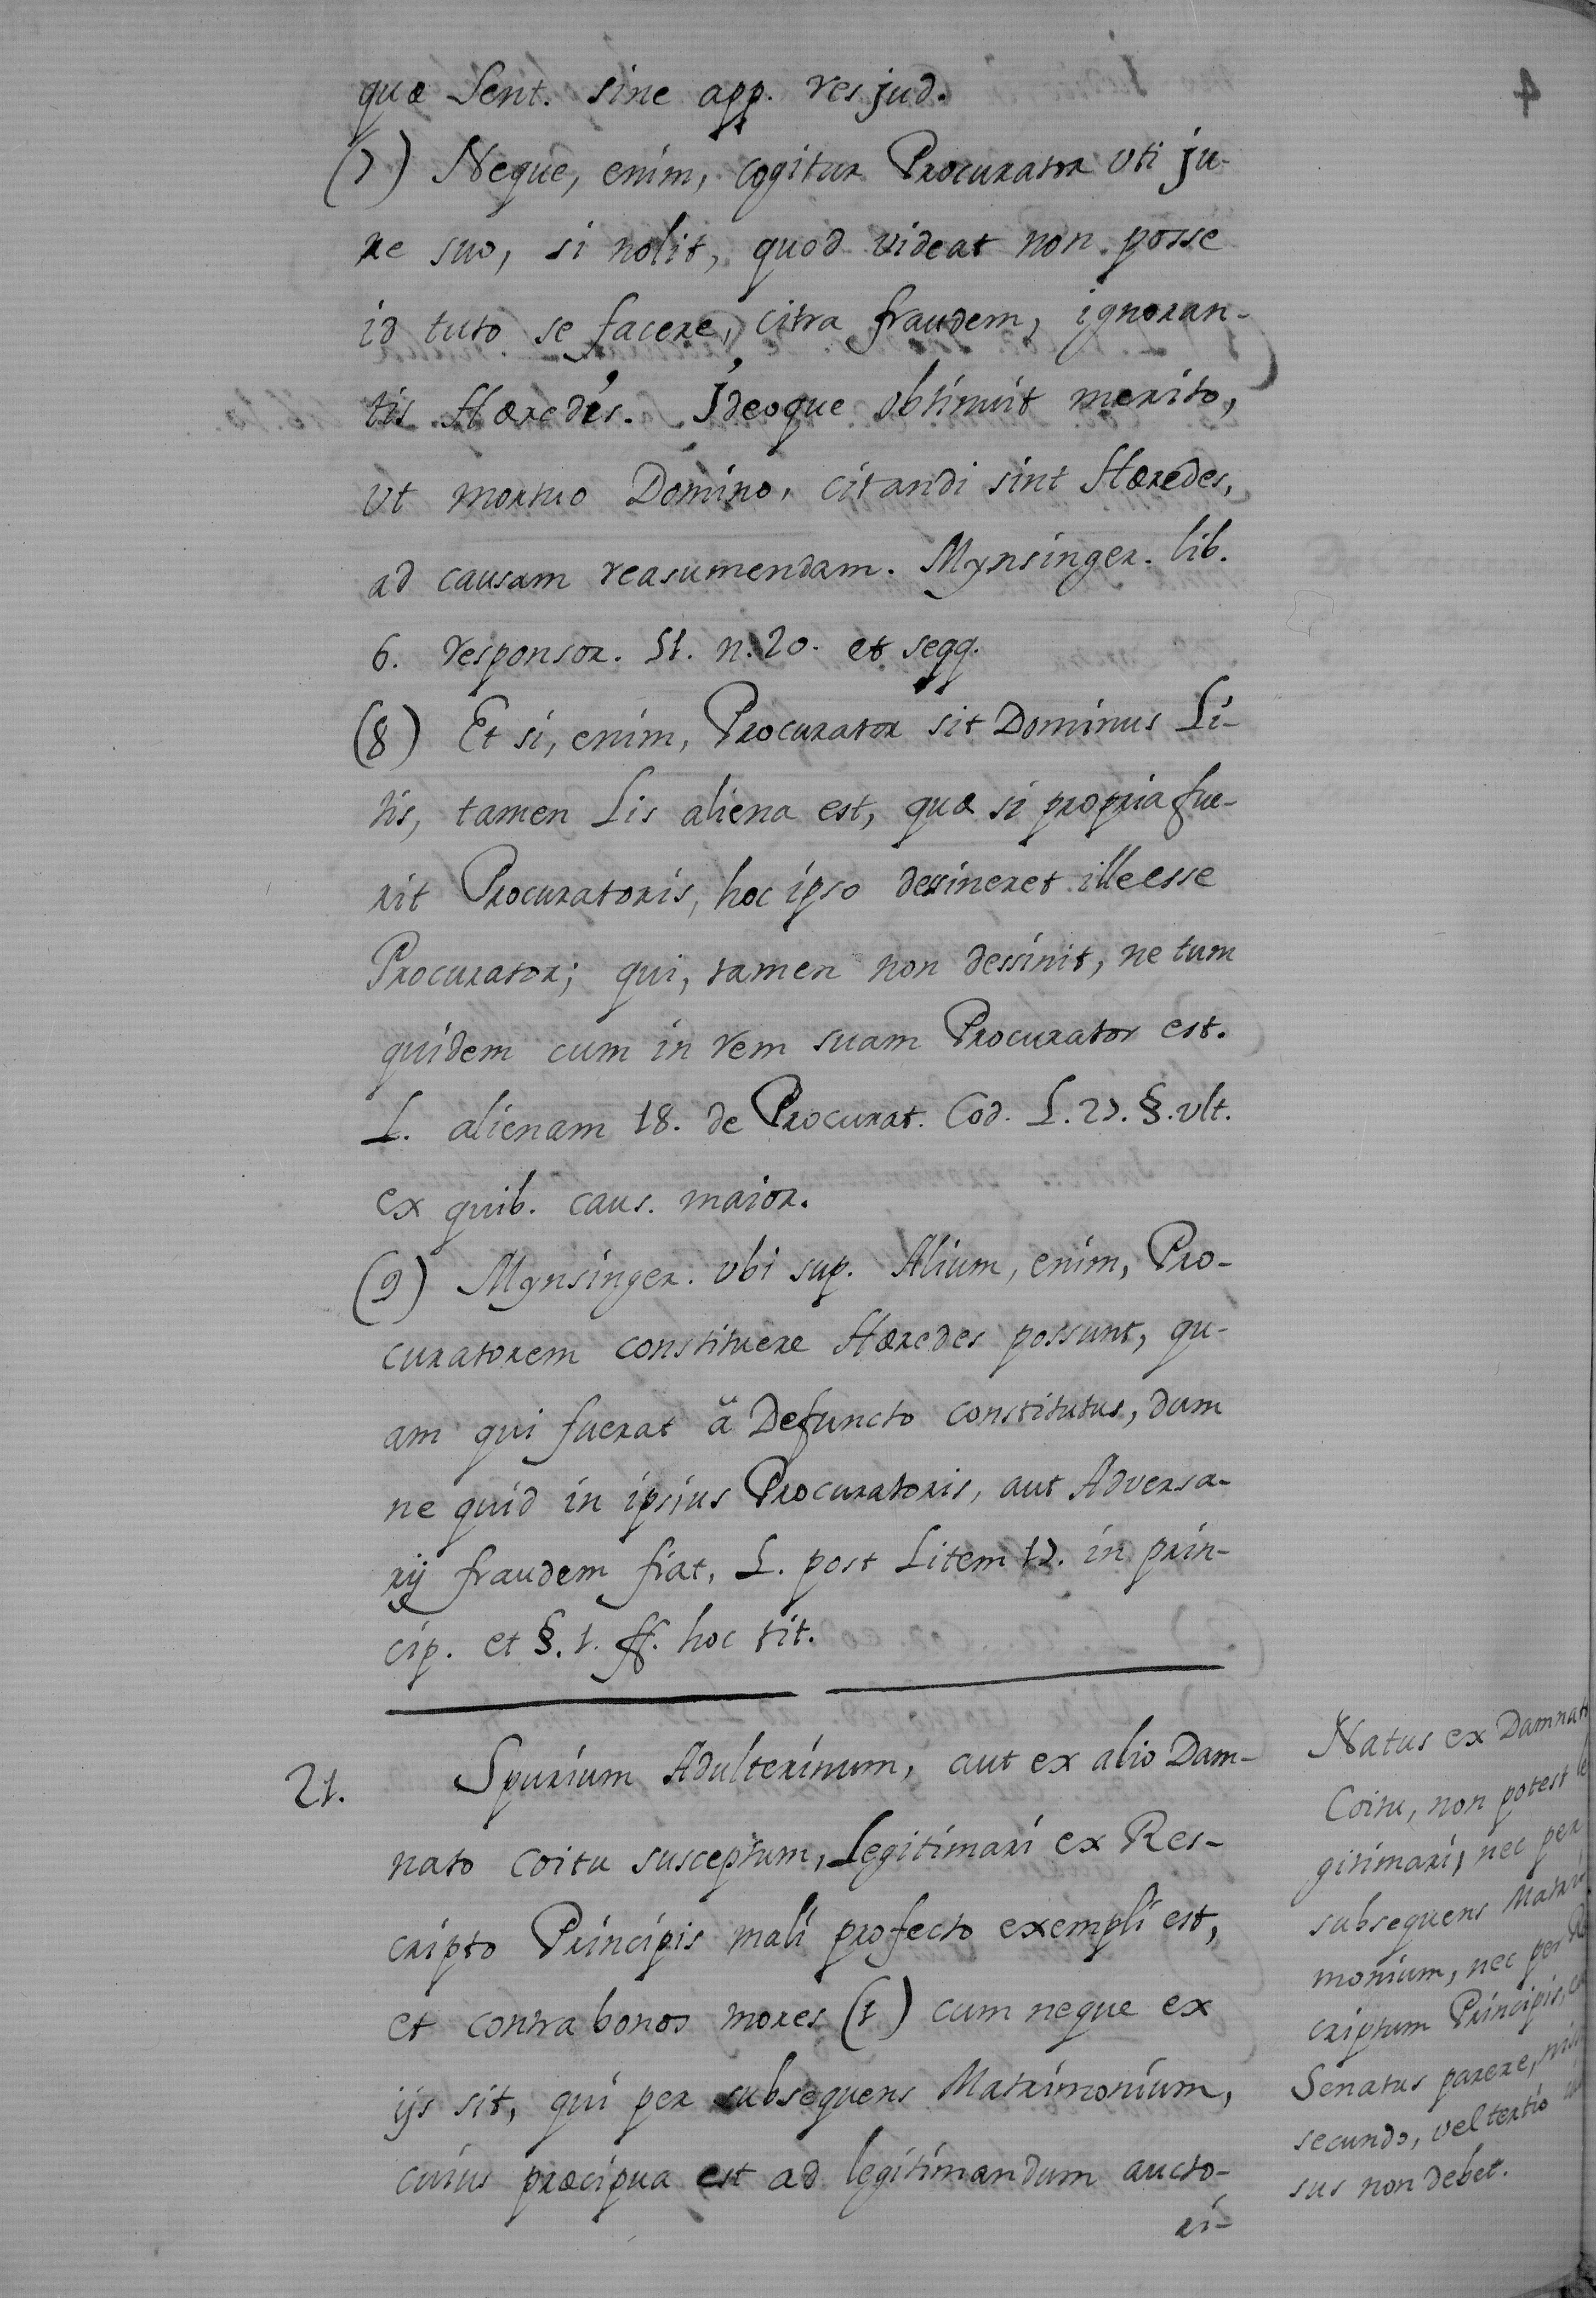 quæ Sent. sine app. res jud.
(7) Neque, enim, cogitur Procurator uti ju-
re suo, si nolit, quod videat non posse
id tuto se facere, citra fraudem, ignoran-
tis Hæredis. Ideoque obtinuit merito,
ut mortuo Domino, citandi sint Hæredes,
ad causam reasumendam. Mynsinger. lib.
6. responsor. 51. n. 20. et seqq.
(8) Et si, enim, Procurator sit Dominus Li-
tis, tamen Lis aliena est, quæ si propria fue-
rit Procuratoris, hoc ipso dessineret ille esse
Procurator; qui, tamen non dessinit, ne tum
quidem cum in rem suam Procurator est.
L. alienam 18. de Procurat. Cod. L. 27. §. vlt.
ex quib. caus. maior.
(9) Mynsinger. vbi sup. Alium, enim, Pro-
curatorem constituere Hæredes possunt, qu-
am qui fuerat à Defuncto constitutus, dum
ne quid in ipsius Procuratoris, aut Adversa-
rij fraudem fiat, L. post Litem 17. in prin-
cip. et §. 1. ff. hoc tit.
21. Spurium Adulterinum, aut ex alio Dam-
nato Coitu susceptum, Legitimari ex Res-
cripto Principis mali profecto exempli est,
et contra bonos mores (1) cum neque ex
ijs sit, qui per subsequens Matrimonium,
cuius præcipua est ad legitimandum aucto-
ri-
Natus ex Damnat
Coitu, non potest le
gitimari, nec per
subsequens Matri
monium, nec per Re
criptum Principis, cu
Senatus parere,
secundo, vel tertio
sus non debet.
4